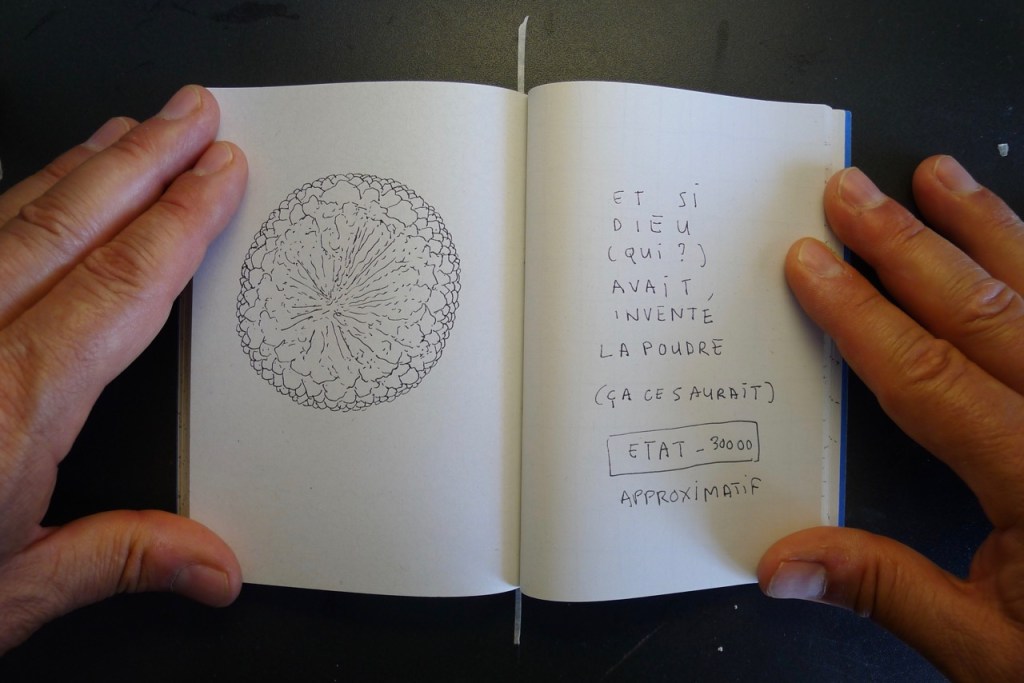 ET Si
DiEU
(QUi ?)
AVAiT
iNVENTÉ
LA POUDRE
(ÇA CE SAURAiT)
ETAT - 30000
APPROXiMATiF